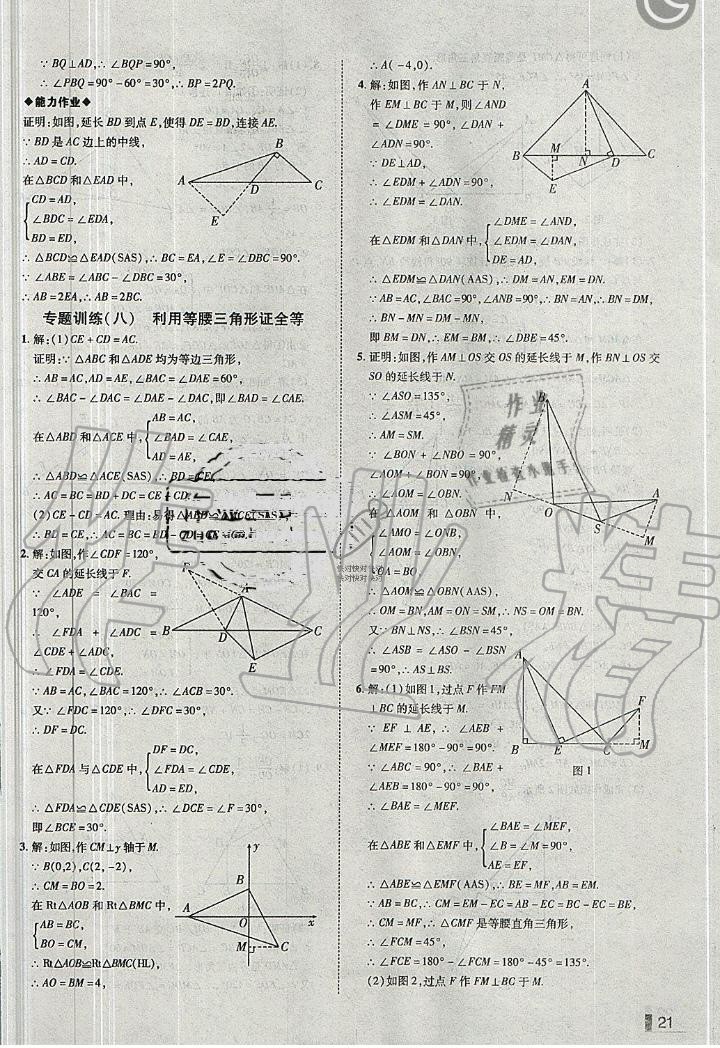 ∵ BQ⊥AD,∴ ∠BQP=90°,
∴ ∠PBQ=90°-60°=30°,∴ BP=2PQ.
◆能力作业◆
证明:如图,延长 BD 到点 E,使得 DE=BD,连接 AE.
∵ BD 是 AC 边上的中线,
∴ AD=CD.
在△BCD 和△EAD 中,
CD=AD,
∠BDC=∠EDA,
BD=ED,
∴ △BCD≌△EAD(SAS),∴ BC=EA,∠E=∠DBC=90°.
∵ ∠ABE=∠ABC-∠DBC=30°,
∴ AB=2EA,∴ AB=2BC.
A B C D E
专题训练(八) 利用等腰三角形证全等
1. 解:(1)CE+CD=AC.
证明:∵ △ABC 和△ADE 均为等边三角形,
∴ AB=AC,AD=AE,∠BAC=∠DAE=60°,
∴ ∠BAC-∠DAC=∠DAE-∠DAC,即∠BAD=∠CAE.
在△ABD 和△ACE 中,
AB=AC,
∠BAD=∠CAE,
AD=AE,
∴ △ABD≌△ACE(SAS),∴ BD=CE,
∴ AC=BC=BD+DC=CE+CD.
(2)CE-CD=AC. 理由:易得△ABD≌△ACE(SAS),
∴ BD=CE,∴ AC=BC=BD-CD=CE-CD.
2. 解:如图,作∠CDF=120°,
交 CA 的延长线于 F.
∵ ∠ADE=∠BAC=
120°,
∴ ∠FDA+∠ADC=
∠CDE+∠ADC,
∴ ∠FDA=∠CDE.
∵ AB=AC,∠BAC=120°,∴ ∠ACB=30°.
又∵ ∠FDC=120°,∴ ∠DFC=30°,
∴ DF=DC.
在△FDA 与△CDE 中,
DF=DC,
∠FDA=∠CDE,
AD=ED,
∴ △FDA≌△CDE(SAS),∴ ∠DCE=∠F=30°,
即∠BCE=30°.
F A B D C E
3. 解:如图,作 CM⊥y 轴于 M.
∵ B(0,2),C(2,-2),
∴ CM=BO=2.
在 Rt△AOB 和 Rt△BMC 中,
AB=BC,
BO=CM,
∴ Rt△AOB≌Rt△BMC(HL),
∴ AO=BM=4,
y B A O x M C
∴ A(-4,0).
4. 解:如图,作 AN⊥BC 于 N,
作 EM⊥BC 于 M,则∠AND
=∠DME=90°,∠DAN+
∠ADN=90°.
∵ DE⊥AD,
∴ ∠EDM+∠ADN=90°,
∴ ∠EDM=∠DAN.
在△EDM 和△DAN 中,
∠DME=∠AND,
∠EDM=∠DAN,
DE=AD,
∴ △EDM≌△DAN(AAS),∴ DM=AN,EM=DN.
∵ AB=AC,∠BAC=90°,∠ANB=90°,∴ BN=AN,∴ BN=DM,
∴ BN-MN=DM-MN,
即 BM=DN,∴ EM=BM,∴ ∠DBE=45°.
A B M N D C E
5. 证明:如图,作 AM⊥OS 交 OS 的延长线于 M,作 BN⊥OS 交
SO 的延长线于 N.
∵ ∠ASO=135°,
∴ ∠ASM=45°,
∴ AM=SM.
∵ ∠BON+∠NBO=90°,
∠AOM+∠BON=90°,
∴ ∠AOM=∠OBN.
在△AOM 和△OBN 中,
∠AMO=∠ONB,
∠AOM=∠OBN,
OA=BO,
∴ △AOM≌△OBN(AAS),
∴ OM=BN,AM=ON=SM,∴ NS=OM=BN.
又∵ BN⊥NS,∴ ∠BSN=45°,
∴ ∠ASB=∠ASO-∠BSN
=90°,∴ AS⊥BS.
B N O A S M
6. 解:(1)如图 1,过点 F 作 FM
⊥BC 的延长线于 M.
∵ EF⊥AE,∴ ∠AEB+
∠MEF=180°-90°=90°.
∵ ∠ABC=90°,∴ ∠BAE+
∠AEB=180°-90°=90°,
∴ ∠BAE=∠MEF.
在△ABE 和△EMF 中,
∠BAE=∠MEF,
∠B=∠EMF,
AE=EF,
∴ △ABE≌△EMF(AAS),∴ AB=EM,BE=MF.
∵ AB=BC,∴ CM=EM-EC=AB-EC=BC-EC=BE,
∴ CM=MF,∴ △CMF 是等腰直角三角形,
∴ ∠FCM=45°,
∴ ∠FCE=180°-∠FCM=180°-45°=135°.
(2)如图 2,过点 F 作 FM⊥BC 于 M.
A F B E C M
图 1
作业
精灵
作业检查小助手
快对快对快对
快对快对快对
21